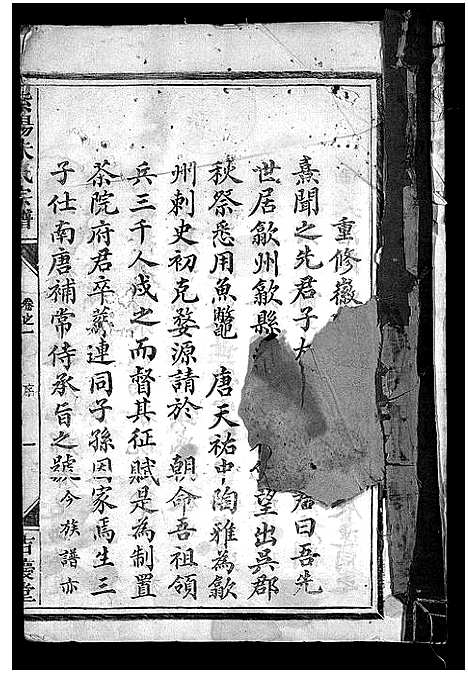 重修徽
熹聞之先君子太 君曰吾先
世居歙州歙縣 望出吳郡
秋祭悉用魚鼈 唐天祐中陶雅為歙
州刺史初克婺源請於 朝命吾祖領
兵三千人戍之而督其征賦是為制置
茶院府君卒葬連同子孫因家焉生三
子仕南唐補常侍承旨之號今族譜亦
紫陽朱氏宗譜
卷之一
序
一